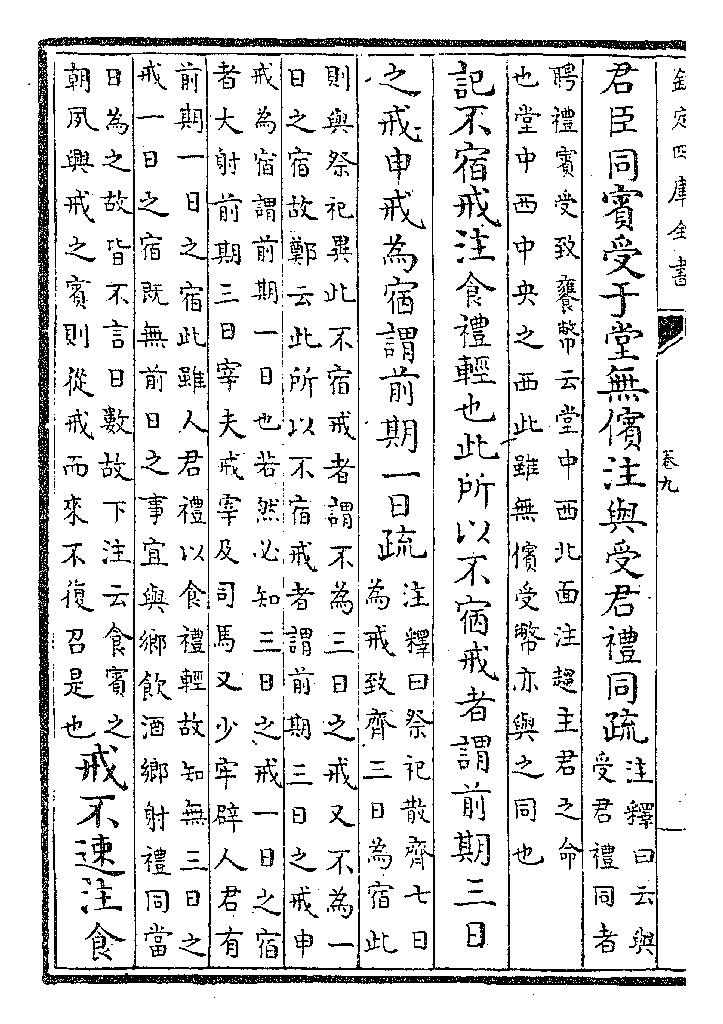 欽定四庫全書
卷九
君臣同賓受于堂無儐注與受君禮同疏注釋曰云與
受君禮同者
聘禮賓受致饔幣云堂中西北面注趨主君之命
也堂中西中央之西此雖無儐受幣亦與之同也
記不宿戒注食禮輕也此所以不宿戒者謂前期三日
之戒申戒為宿謂前期一日疏注釋曰祭祀散齊七日
為戒致齊三日為宿此
則與祭祀異此不宿戒者謂不為三日之戒又不為一
日之宿故鄭云此所以不宿戒者謂前期三日之戒申
戒為宿謂前期一日也若然必知三日之戒一日之宿
者大射前期三日宰夫戒宰及司馬又少牢辟人君有
前期一日之宿此雖人君禮以食禮輕故知無三日之
戒一日之宿既無前日之事宜與鄉飲酒鄉射禮同當
日為之故皆不言日數故下注云食賓之
朝夙興戒之賓則從戒而來不復召是也戒不速注食